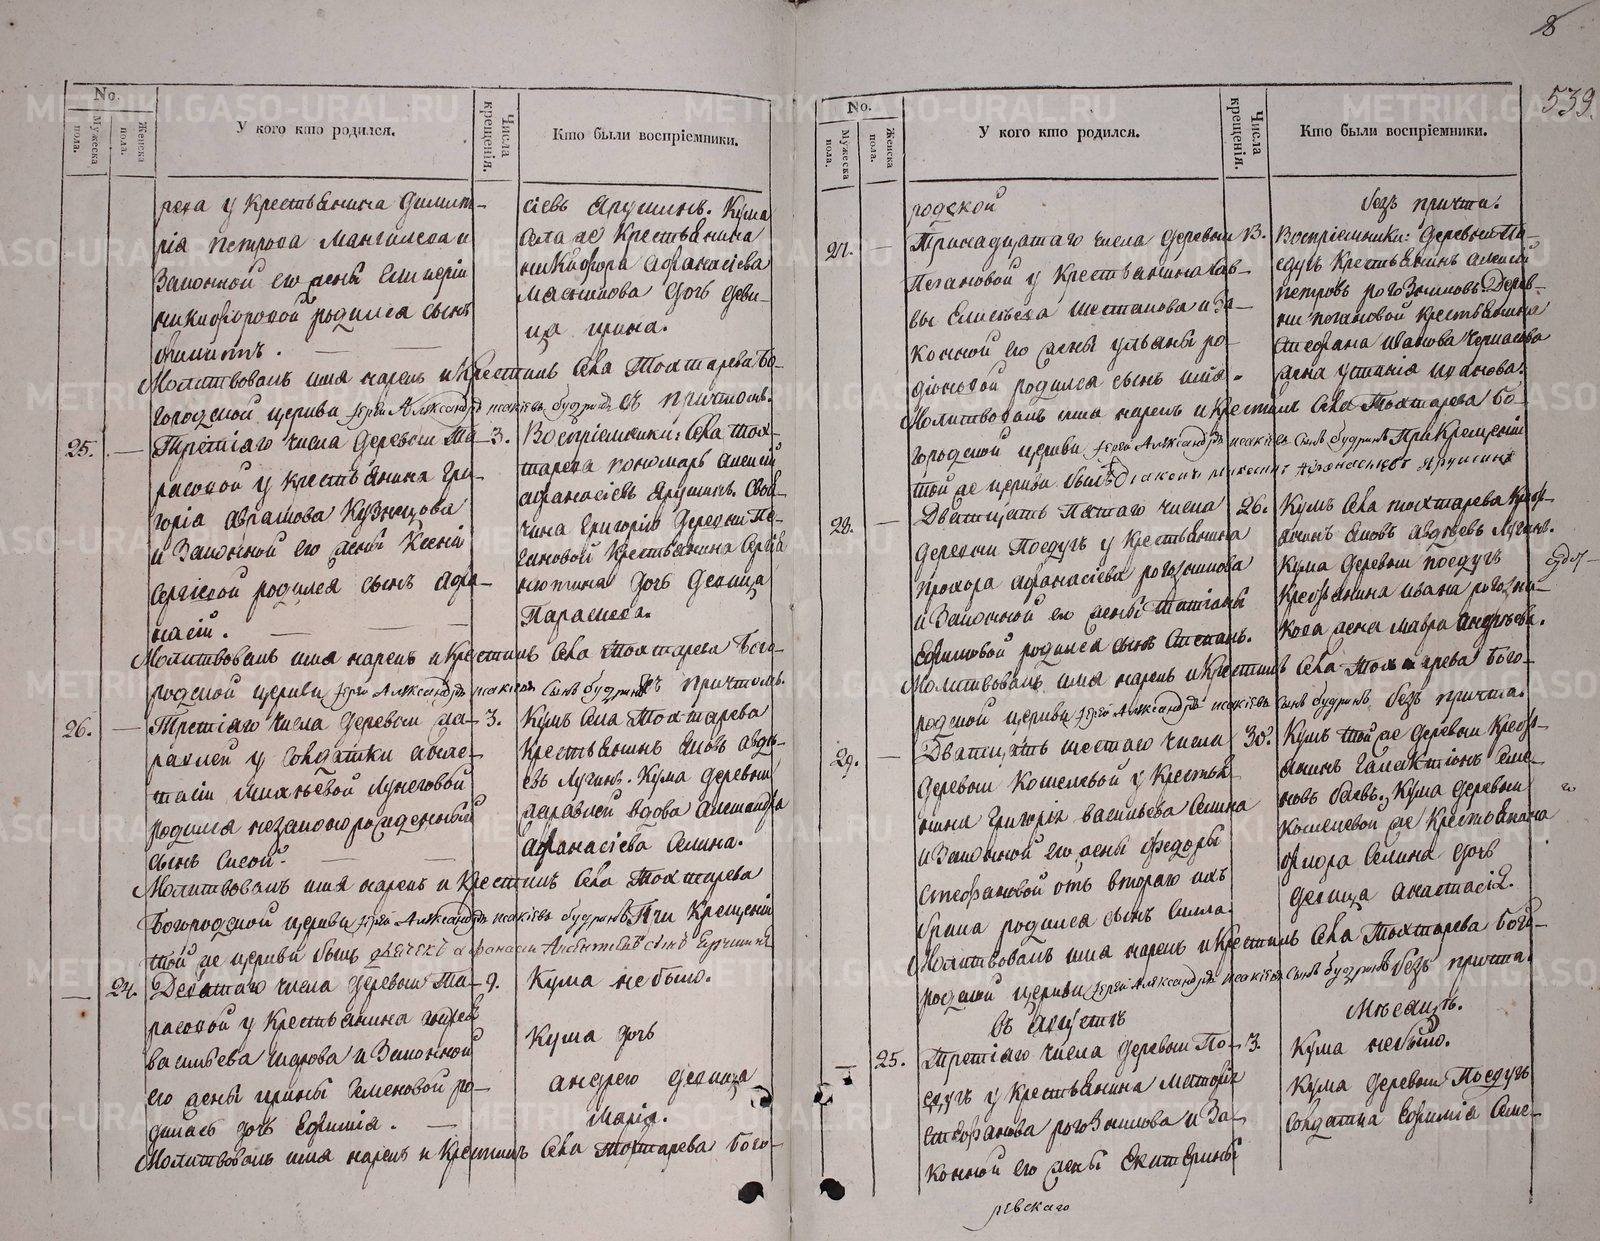 8
539.
No.
Мужеска пола.
Женска пола.
У кого кто родился.
Числа крещенія.
Кто были воспріемники.
рева у крестьянина Димит-
рія Петрова Мангилева и
законной его жены Гликеріи
Никифоровой родился сынъ
Филиппъ.
сіевъ Ярушинъ. Кума
села же крестьянина
Никифора Афанасіева
дочь деви-
ца Ирина.
Молитвовалъ имя нарекъ и крестилъ села Тохтарева Бо-
городской церкви іерей Александръ Исакіевъ Будринъ съ причтомъ.
25.
Третіаго числа деревни Та-
расовой у крестьянина Гри-
горіа Аврамова Кузнецова
и законной его жены Ксеніи
Сергіевой родился сынъ Афа-
насій.
3.
Воспріемники: села Тох-
тарева пономарь Алексій
Афанасіевъ Ярушинъ. Свой-
чина Григорію деревни По-
гановой крестьянина Сергія
дочь девица
Параскева.
Молитвовалъ имя нарекъ и крестилъ села Тохтарева Бого-
родской церкви іерей Александръ Исакіевъ сынъ Будринъ съ причтомъ.
26.
Третіаго числа деревни
у солдатки Анас-
тасіи Лунеговой
родился незаконорожденный
сынъ Сысой.
3.
Кумъ села Тохтарева
крестьянинъ Яковъ Авдѣ-
евъ Лузинъ. Кума деревни
вдова Александра
Афанасіева Селина.
Молитвовалъ имя нарекъ и крестилъ села Тохтарева
Богородской церкви іерей Александръ Исакіевъ Будринъ. При крещеніи
той же церкви былъ
24.
Девятаго числа деревни Та-
расовой у крестьянина
Васильева и законной
его жены Ирины Семеновой ро-
дилась дочь Евфимія.
9.
Кума не было.
Кума дочь
Андрею девица
Марія.
Молитвовалъ имя нарекъ и крестилъ села Тохтарева Бого-
No.
Мужеска пола.
Женска пола.
У кого кто родился.
Числа крещенія.
Кто были воспріемники.
родской
без причта.
27.
Тринадцатаго числа деревни
Погановой у крестьянина Сав-
вы Елисѣева Шестакова и за-
конной его жены Ульяны Ро-
діоновой родился сынъ Илія.
13.
Воспріемники: деревни По-
едугъ крестьянинъ Алексій
Петровъ Рогозниковъ. Дерев-
ни Погановой крестьянина
Стефана Иванова
жена Устинія Иванова.
Молитвовалъ имя нарекъ и крестилъ села Тохтарева Бо-
городской церкви іерей Александръ Исакіевъ сынъ Будринъ При крещеніи
той же церкви былъ діаконъ Афанасьевъ Ярушинъ
28.
Дватцать пятаго числа
деревни Поедугъ у крестьянина
Прохора Афанасіева Рогозникова
и законной его жены Татіаны
Ефимовой родился сынъ Степанъ.
26.
Кумъ села Тохтарева крес-
янинъ Яковъ Авдѣевъ Лузинъ.
Кума деревни Поедугъ
крестьянина Ивана Рогозни-
кова жена Мавра Андрѣева.
Молитвовалъ имя нарекъ и крестилъ села Тохтарева Бого-
родской церкви іерей Александръ Исакіевъ сынъ Будринъ без причта.
29.
Дватцать шестаго числа
деревни Кошелевой у крестья-
нина Григорія Васильева Селина
и законной его жены Федоры
Стефановой отъ втораго ихъ
брака родился сынъ Силла.
30.
Кумъ той же деревни крес-
янинъ Галактіонъ Семе-
новъ Кума деревни
Кошелевой же крестьянина
Фиора Селина дочь
девица Анастасія.
Молитвовалъ имя нарекъ и крестилъ села Тохтарева Бого-
родской церкви іерей Александръ Исакіевъ сынъ Будринъ без причта.
Въ Августѣ
Мѣсяцѣ.
25.
Третіаго числа деревни По-
едугъ у крестьянина
Стефанова Рогозникова и за-
конной его жены Екатерины
3.
Кума не было.
Кума деревни Поедугъ
солдатка Евфимія Семе-